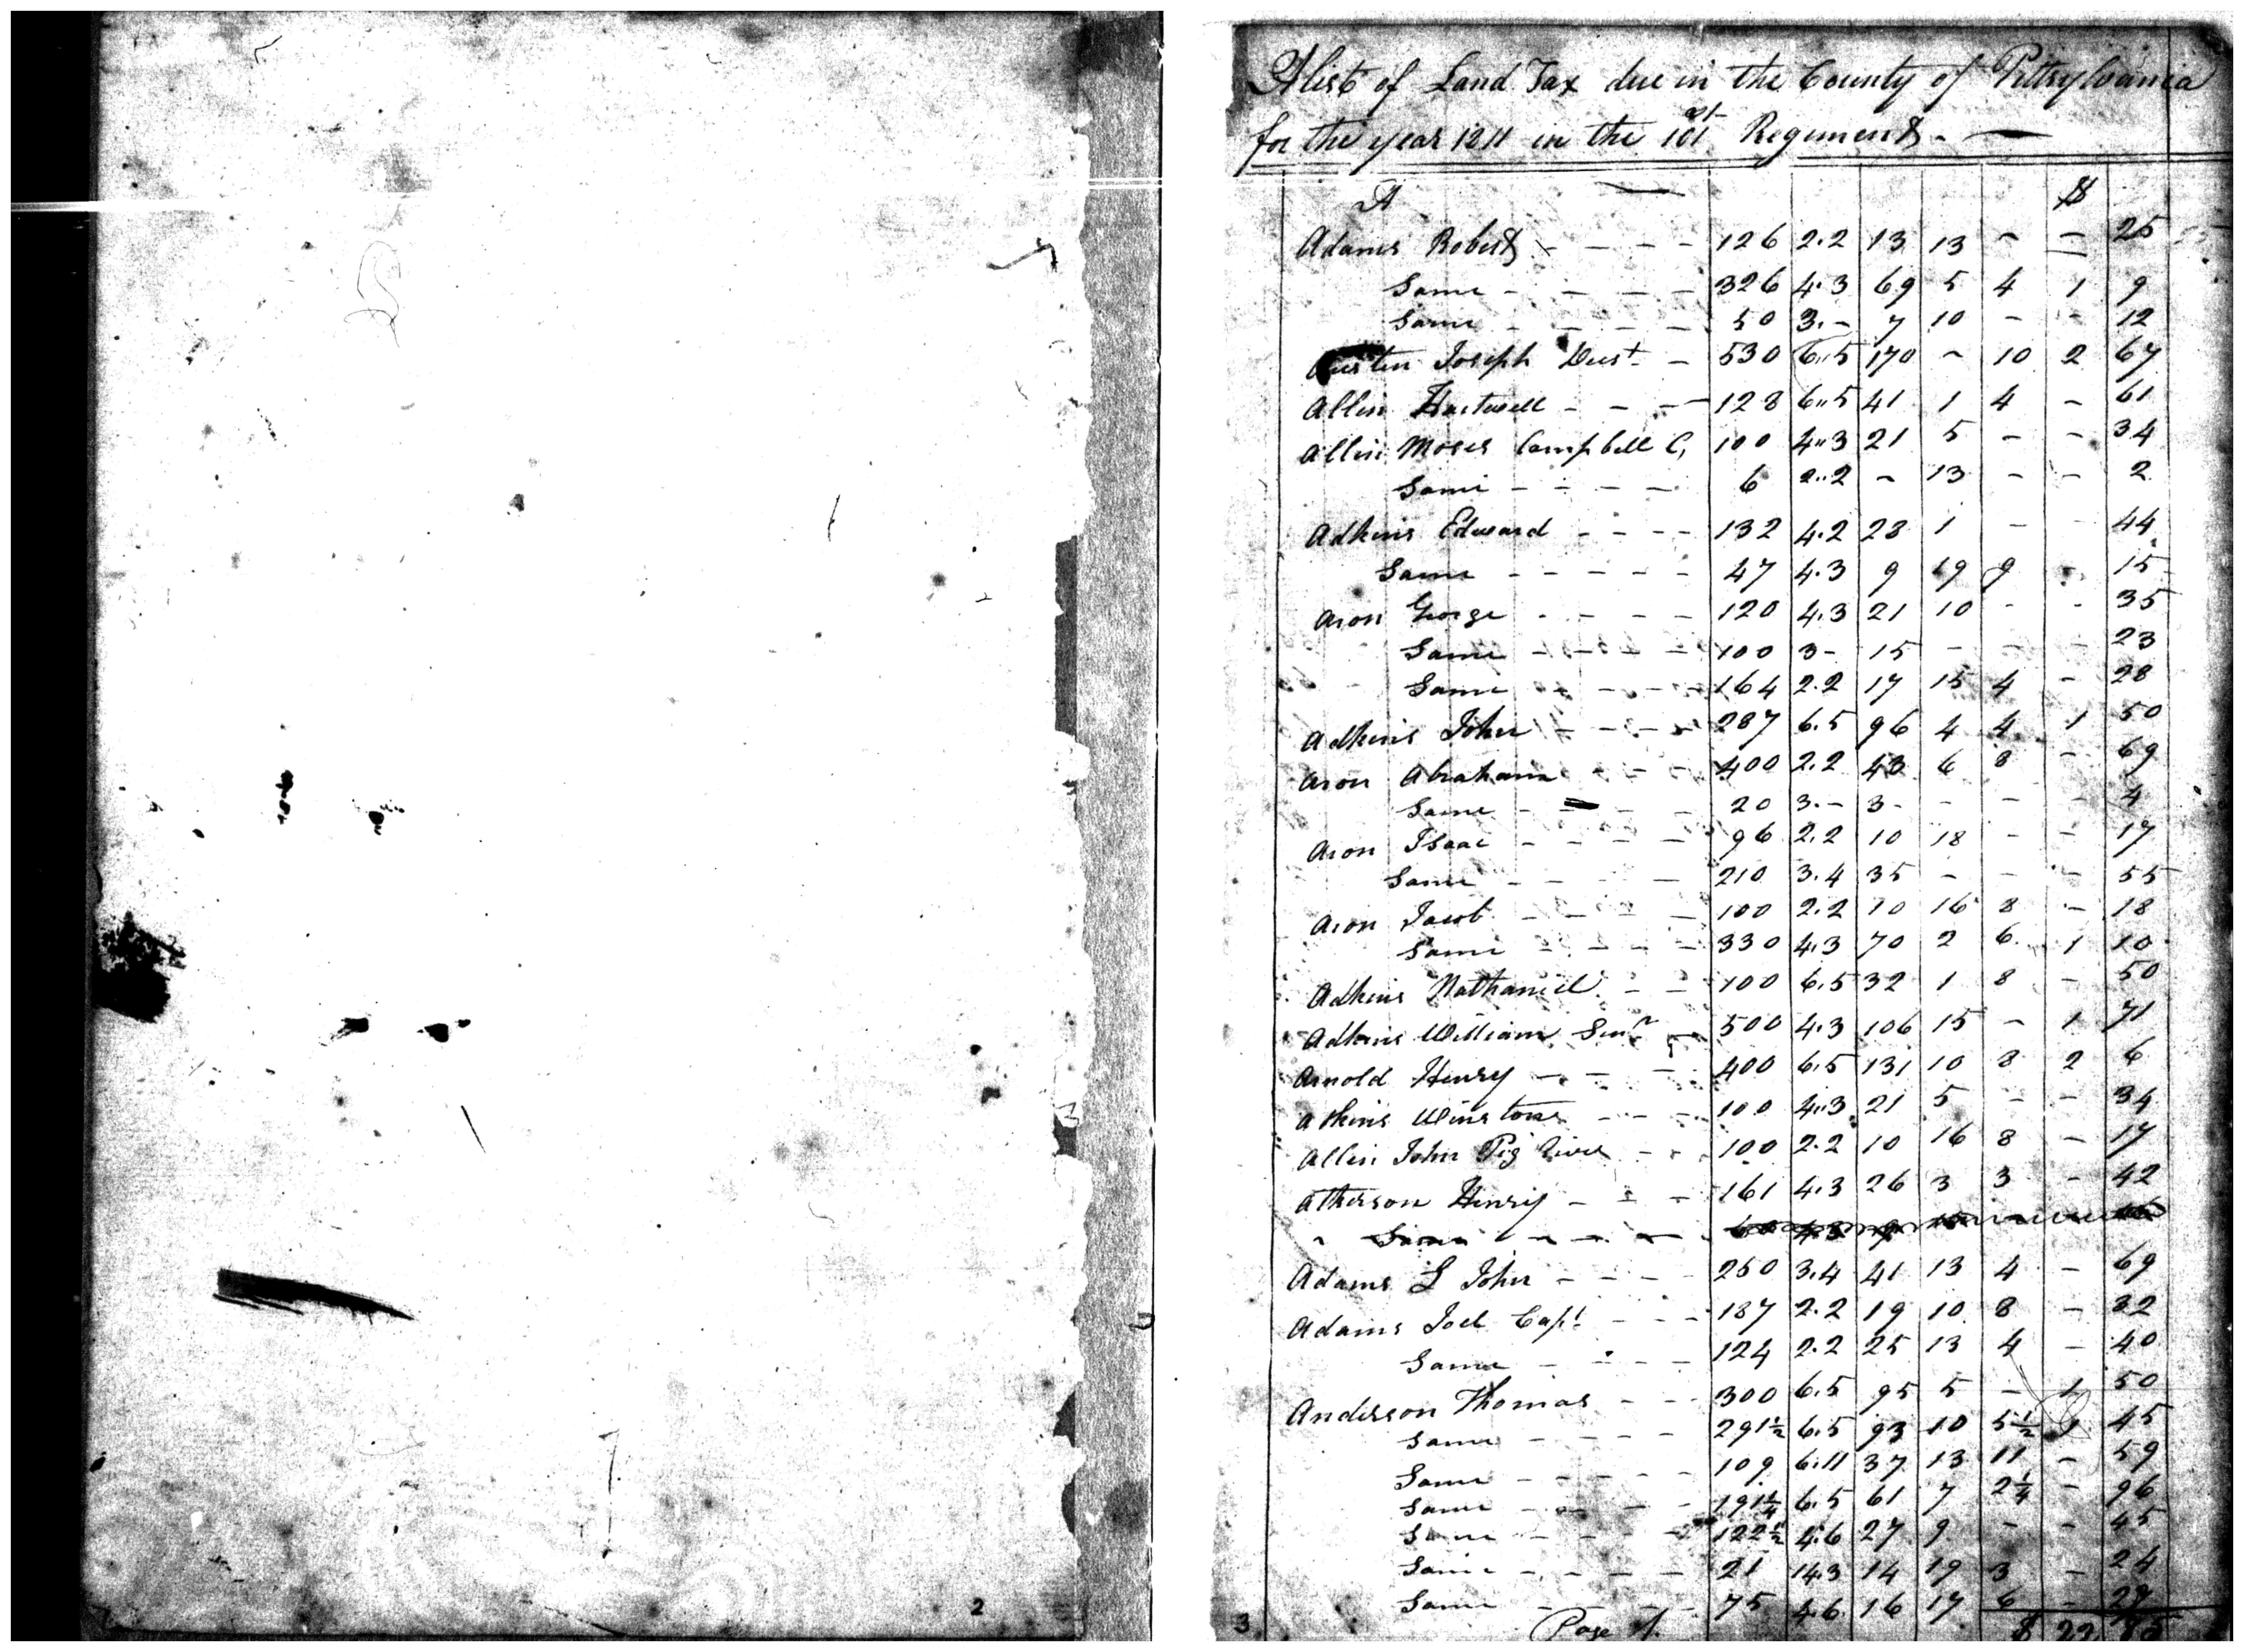 2
A list of Land Tax due in the County of Pittsylvania
for the year 1811 in the 101st Regiment - —
A $
Adams Robert - - - - 126 2.2 13 13 - - 25
Same - - - - 326 4.3 69 5 4 1 9
Same - - - - 50 3.- 7 10 - - 12
Austin Joseph - 530 6..5 170 - 10 2 67
Allin Hartwell - - - 128 6..5 41 1 4 - 61
Allin Moses Campbell C, 100 4..3 21 5 - - 34
Same - - - - 6 2..2 - 13 - - 2
Adkins Edward - - - - 132 4.2 28 1 - - 44
Same - - - - - 47 4.3 9 19 9 - 15
Aron George - - - - 120 4.3 21 10 - - 35
Same - - - - 100 3- 15 - - - 23
Same - - - - 164 2.2 17 15 4 - 28
Adkins John - - - - 287 6.5 96 4 4 1 50
Aron Abraham - - - 400 2.2 43 6 8 - 69
Same - - - - 20 3.- 3- - - - 4
Aron Isaac - - - - - 96 2.2 10 18 - - 17
Same - - - - 210 3.4 35 - - - 55
Aron Jacob - - - - - 100 2.2 10 16 8 - 18
Same - - - - - 330 4.3 70 2 6 1 10
Adkins Nathaniel - - 100 6.5 32 1 8 - 50
Adkins William Senr - 500 4.3 106 15 - 1 71
Arnold Henry - - - - 400 6.5 131 10 8 2 6
Atkins Winston - - - 100 4..3 21 5 - - 34
Allin John Pig River - - 100 2.2 10 16 8 - 17
Atherson Henry - - - 161 4.3 26 3 3 - 42
Same - - - -
Adams L John - - - - 250 3.4 41 13 4 - 69
Adams Joel Capt - - - 187 2.2 19 10 8 - 32
Same - - - - 124 2.2 25 13 4 - 40
Anderson Thomas - - 300 6.5 95 5 - 1 50
Same - - - - 291½ 6.5 93 10 5½ 1 45
Same - - - - - 109 6.11 37 13 11 - 59
Same - - - - 191¼ 6.5 61 7 2¼ - 96
Same - - - - 122½ 4.6 27 9 - - 45
Same - - - - - 21 14.3 14 19 3 - 24
Same - - - - 75 4.6 16 17 6 - 27
3 Page 1. $ 22